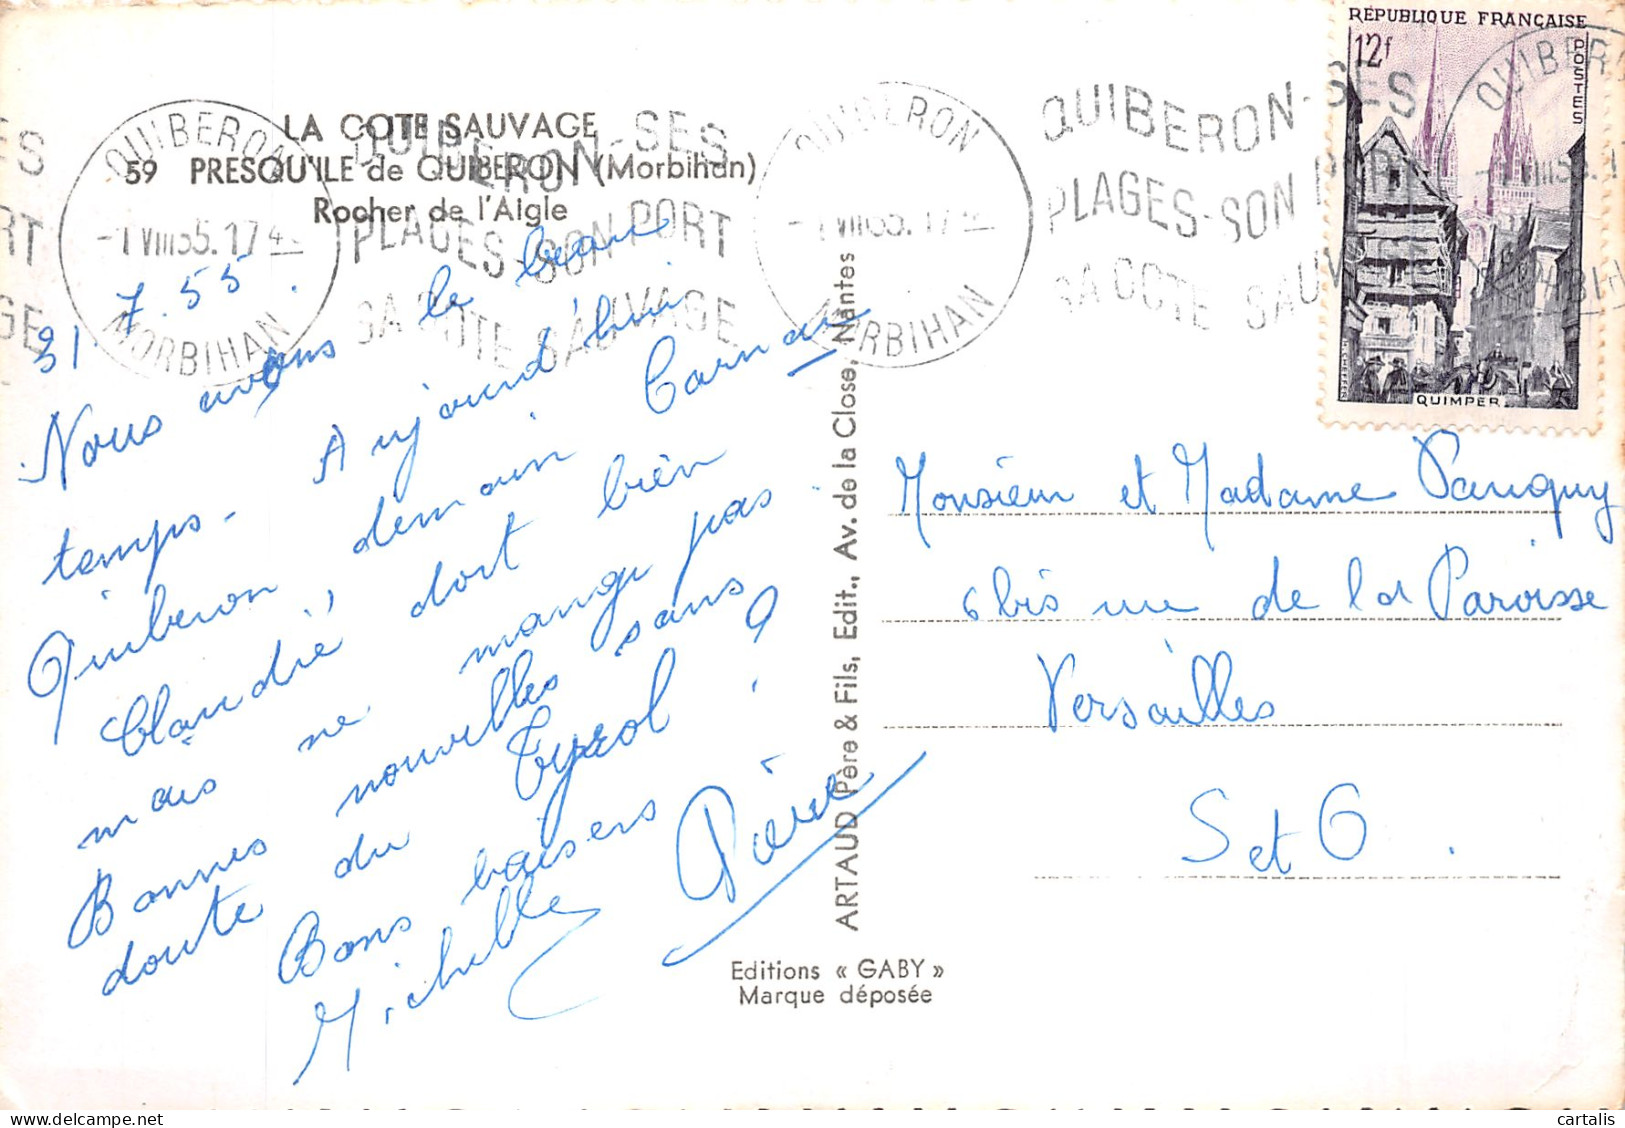 LA COTE SAUVAGE
59 PRESQU'ILE de QUIBERON (Morbihan)
Rocher de l'Aigle
QUIBERON
-1 VIII 55.17
MORBIHAN
QUIBERON-SES
PLAGES-SON PORT
SA COTE SAUVAGE
QUIBERON
-1 VIII 55.17
MORBIHAN
QUIBERON-SES
PLAGES-SON PORT
SA COTE SAUV
RÉPUBLIQUE FRANÇAISE
12f
POSTES
QUIMPER
31.7.55.
Nous avons le beau
temps. Aujourd'hui
Quiberon, demain Carnac
Claudie dort bien
mais ne mange pas.
Bonnes nouvelles sans
doute du Tyrol ?
Bons baisers
Michelle Pierre
ARTAUD Père & Fils, Edit., Av. de la Close, Nantes
Editions « GABY »
Marque déposée
Monsieur et Madame
6 bis rue de la Paroisse
Versailles
S et O.
cartalis